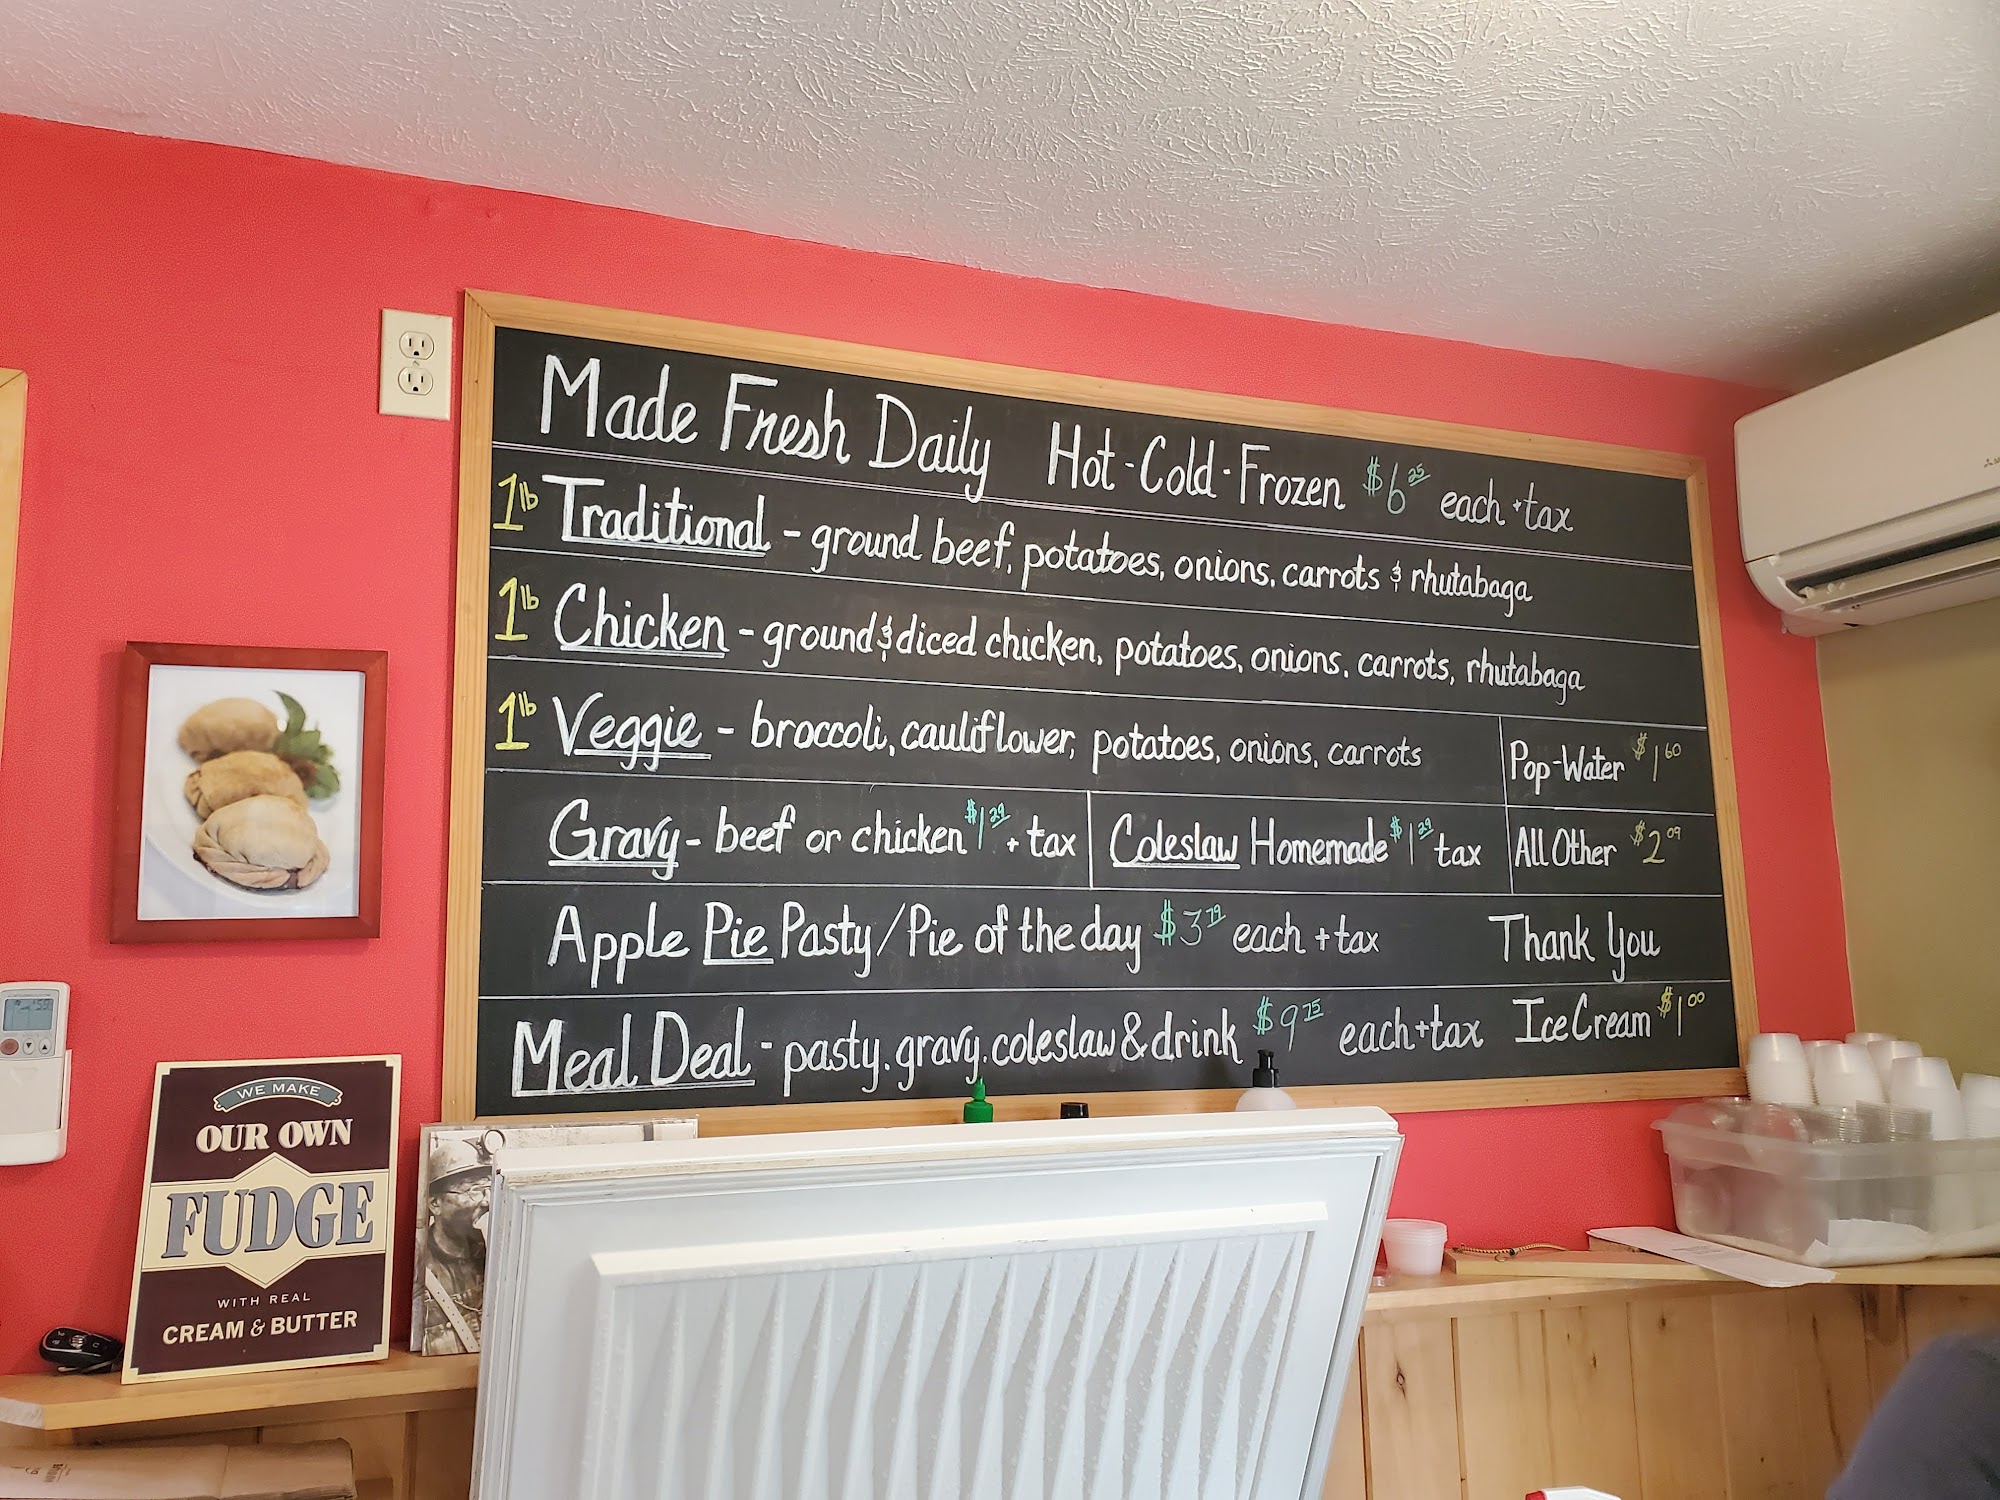 Made Fresh Daily Hot-Cold-Frozen $6.25 each + tax
1lb Traditional - ground beef, potatoes, onions, carrots & rhutabaga
1lb Chicken - ground & diced chicken, potatoes, onions, carrots, rhutabaga
1lb Veggie - broccoli, cauliflower, potatoes, onions, carrots
Pop-Water $1.60
Gravy - beef or chicken $1.29 + tax
Coleslaw Homemade $1.29 + tax
All Other $2.09
Apple Pie Pasty/Pie of the day $3.79 each + tax
Thank You
Meal Deal - pasty, gravy, coleslaw & drink $9.75 each + tax
Ice Cream $1.00
WE MAKE
OUR OWN
FUDGE
WITH REAL
CREAM & BUTTER